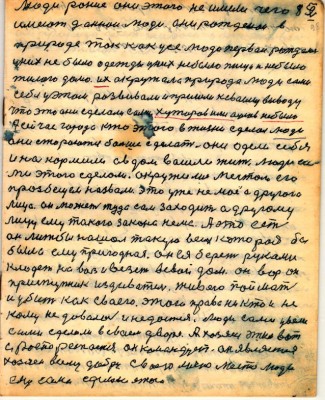 Люди ранше они этого не имели чего
имеют данное люди. они рождаем в
природе так как все людо первая рождал
у них не было одежды у них небыло пищи и небыло
жилого дома. их окружала природа. люди сами
себя у этом развивали и пришли к вашему выводу
что это они сделали сами. хуторов или аулов небыло
А сейчас города кто этого в жизни сделал люди
они стараются больше сделать. они одели себя
и накормили и в дом вошли жить. Люди са-
ми этого сделали. окружили место его
прозвещем назвали. Это уже не моё а другого
лица. он может туда сам заходить а другому
лицу ему такого закона нема. А это сет
он нашол такую вещь которая бы
была ему пригодная. он ея береть руками
кладет на воз и везет в свой дом. он вор он
приступник издевается живого поймает
и убить как своего. этого права никто и не
кому не довал и недается. Люди сами увели
сами сделали в своем дворе. А хозяин этко вот
и распоряжается он командует. он является
хозяев всему добру своего место люди
ему сами сделали этого